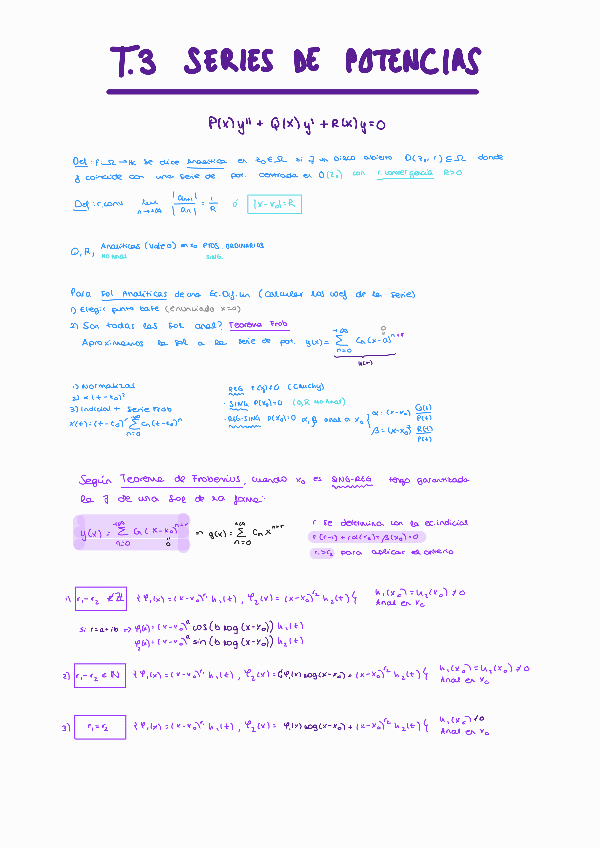 T.3 SERIES DE POTENCIAS
P(x)y'' + Q(x)y' + R(x)y = 0
Def: f: Ω → K se dice analítica en z₀ ∈ Ω si ∃ un disco abierto D(z₀, r) ⊆ Ω donde
f coincide con una serie de pot. centrada en D(z₀) con r.convergencia R>0
Def: r.conv lim n→+∞ |aₙ₊₁| / |aₙ| = 1/R ó |x-x₀| = R
Q, R, Analíticas (vale 0) en x₀ PTOS. ORDINARIOS
NO ANAL SING.
Para Sol Analíticas de una Ec.Dif. Lin (calcular los coef de la serie)
1) Elegir punto base (enunciado x=0)
2) Son todas las sol anal? Teorema Frob
Aproximamos la sol a la serie de pot. y(x) = Σ n=0 +∞ Cₙ(x-a)ⁿ⁺ʳ
1) Normalizas
3) Indicial + Serie Frob
x(t) = (t-t₀)ʳ Σ n=0 ∞ Cₙ(t-t₀)ⁿ
REG (Cauchy)
· SING P(x₀)=0 (Q,R no anas)
· REG-SING P(x₀)=0 α, β anal a x₀ { α: (x-x₀) Q(t)/P(t)
β = (x-x₀)² R(t)/P(t)
Según Teorema de Frobenius, cuando x₀ es SING-REG tengo garantizada
la ∃ de una sol de la forma:
y(x) = Σ n=0 +∞ Cₙ(x-x₀)ⁿ⁺ʳ ⇒ y(x) = Σ n=0 +∞ Cₙ xⁿ⁺ʳ
r se determina con la ec.indicial
r(r-1) + rα(x₀) + β(x₀) = 0
r₁>r₂ para aplicar el criterio
1) r₁-r₂ ∉ ℤ {φ₁(x) = (x-x₀)^r₁ h₁(t), φ₂(x) = (x-x₀)^r₂ h₂(t)} h₁(x₀) = h₂(x₀) ≠ 0
Anal en x₀
si r=a+ib ⇒ φ₁(x) = (x-x₀)ᵃ cos(b log(x-x₀)) h₁(t)
φ₂(x) = (x-x₀)ᵃ sin(b log(x-x₀)) h₂(t)
2) r₁-r₂ ∈ ℕ {φ₁(x) = (x-x₀)^r₁ h₁(t), φ₂(x) = Cφ₁(x) log(x-x₀) + (x-x₀)^r₂ h₂(t)} h₁(x₀) = h₂(x₀) ≠ 0
Anal en x₀
3) r₁=r₂ {φ₁(x) = (x-x₀)^r₁ h₁(t), φ₂(x) = φ₁(x) log(x-x₀) + (x-x₀)^r₂ h₂(t)} h₁(x₀) ≠ 0
Anal en x₀